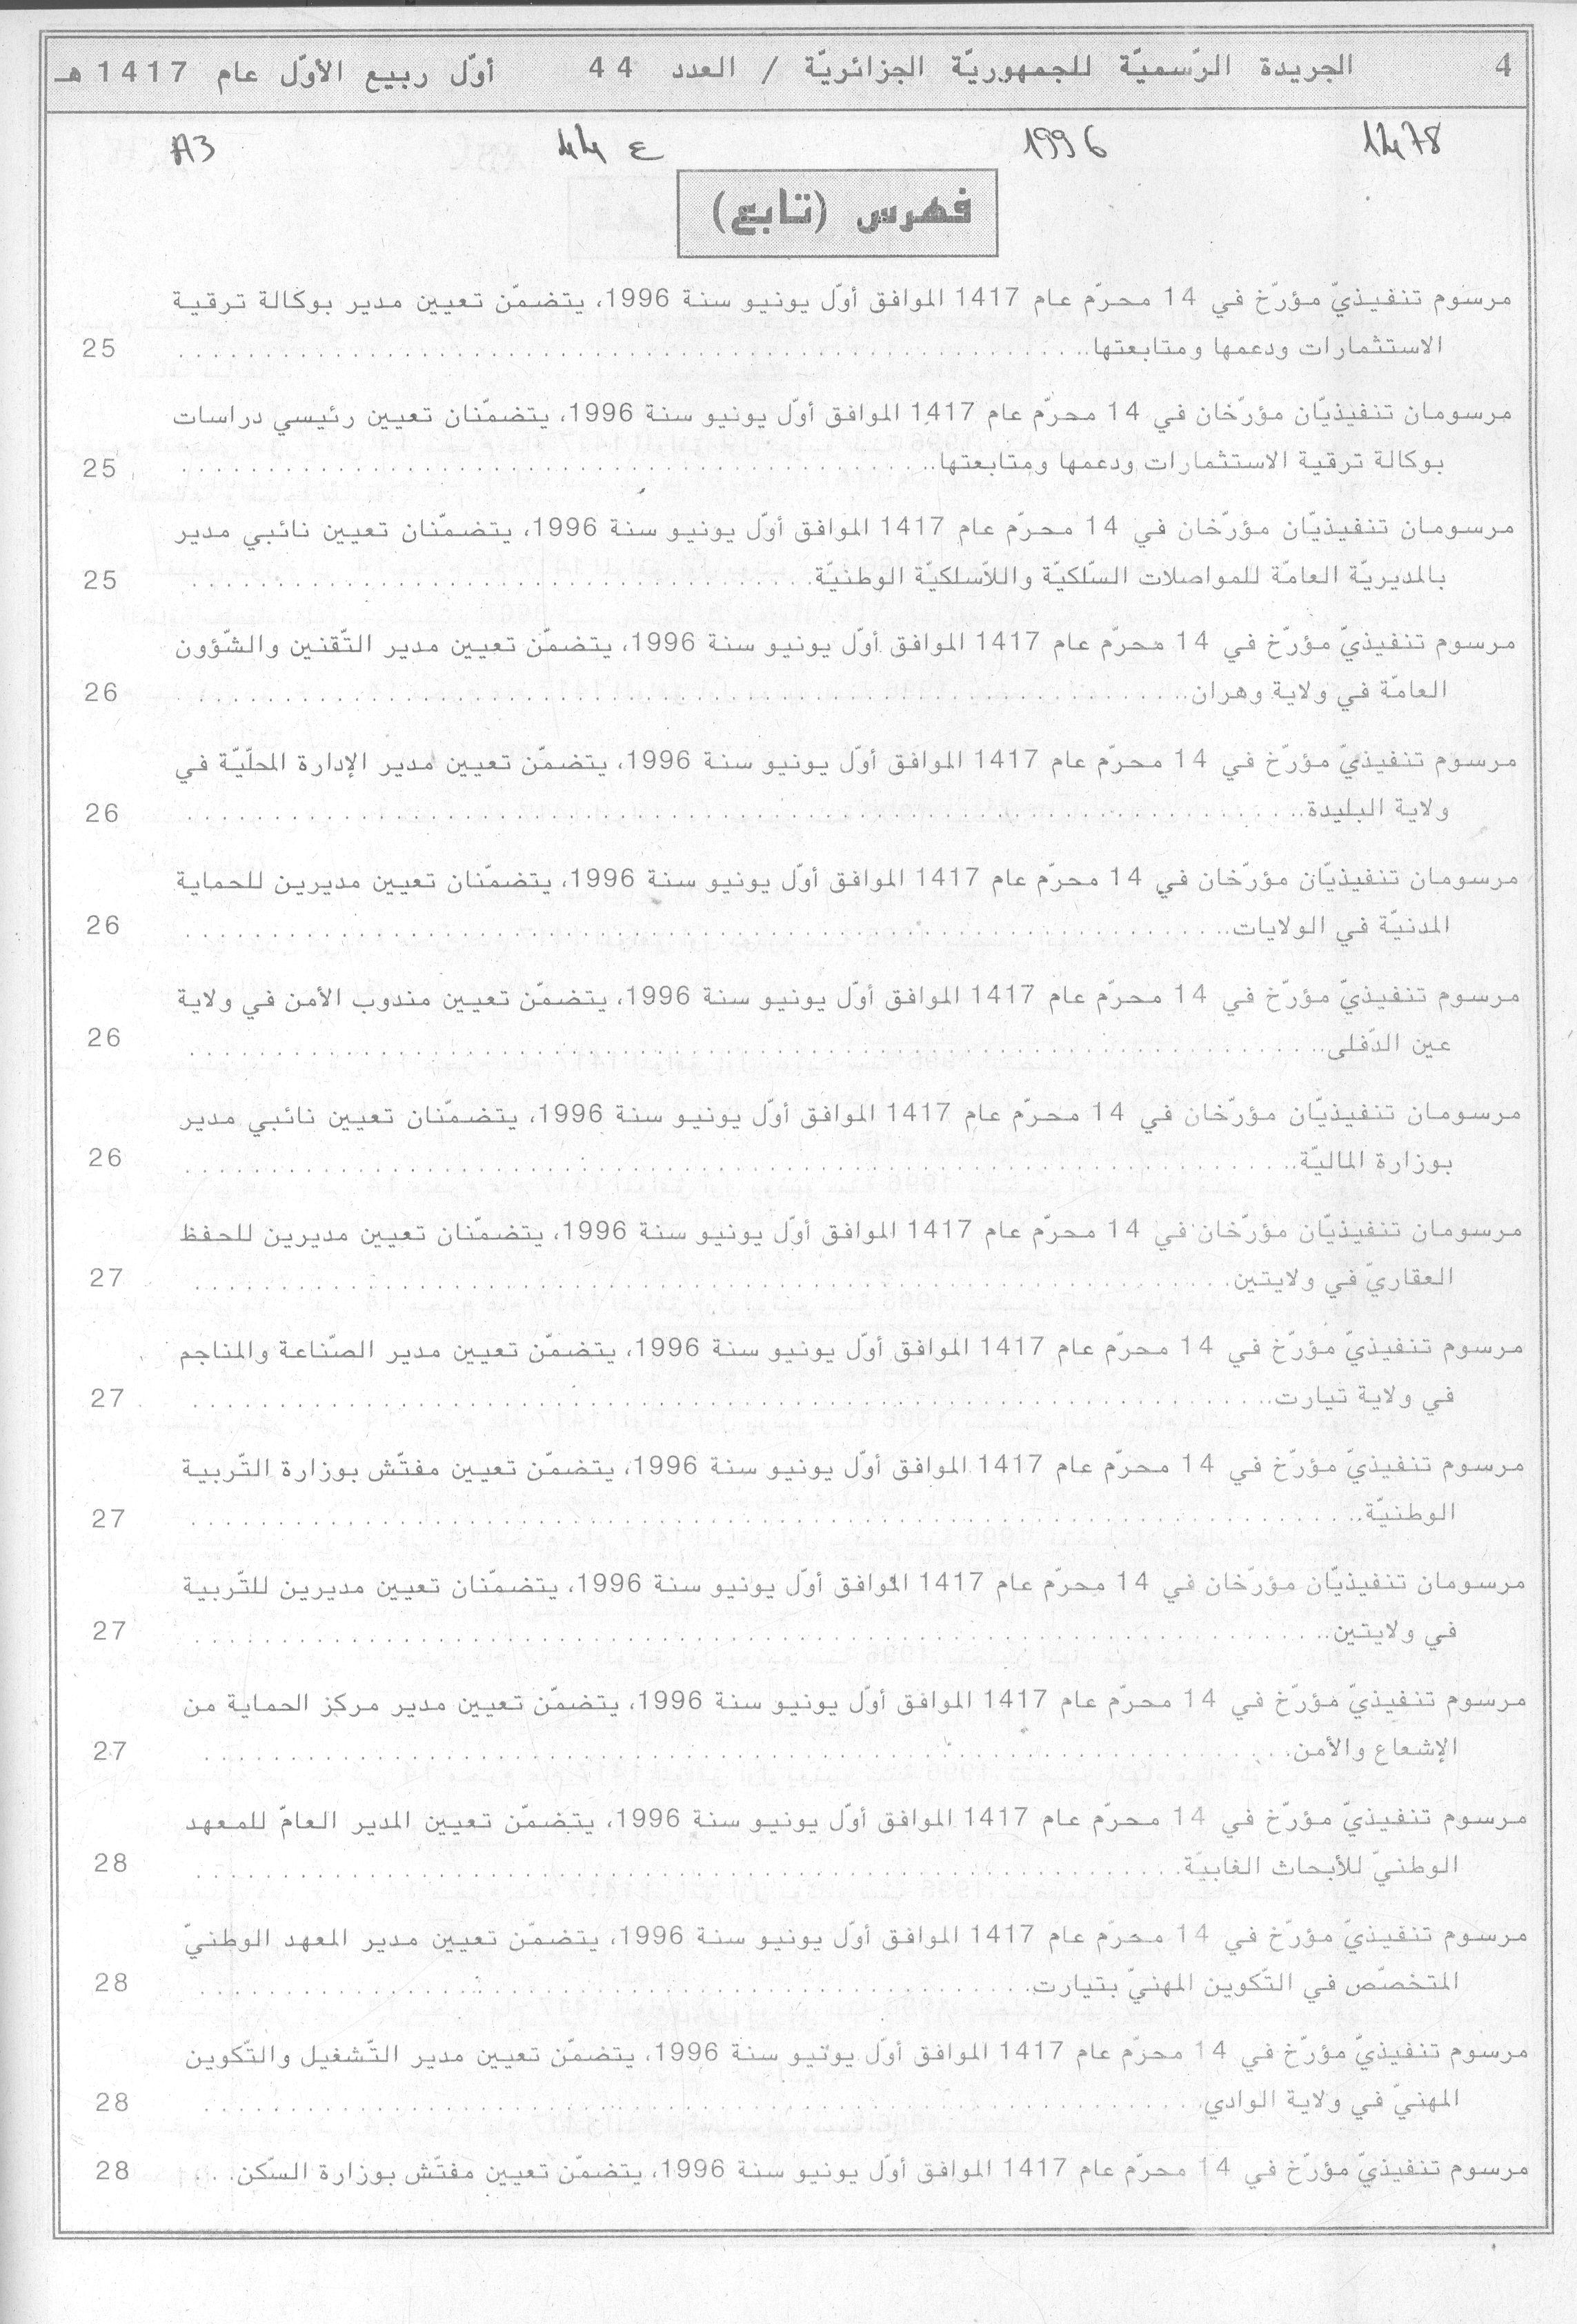 4 الجريدة الرّسميّة للجمهوريّة الجزائريّة / العدد 44 أوّل ربيع الأوّل عام 1417 هـ
1478 1996 ع 44 A3
فهرس (تابع)
مرسوم تنفيذيّ مؤرّخ في 14 محرّم عام 1417 الموافق أوّل يونيو سنة 1996، يتضمّن تعيين مدير بوكالة ترقية
الاستثمارات ودعمها ومتابعتها.. 25
مرسومان تنفيذيّان مؤرّخان في 14 محرّم عام 1417 الموافق أوّل يونيو سنة 1996، يتضمّنان تعيين رئيسي دراسات
بوكالة ترقية الاستثمارات ودعمها ومتابعتها.. 25
مرسومان تنفيذيّان مؤرّخان في 14 محرّم عام 1417 الموافق أوّل يونيو سنة 1996، يتضمّنان تعيين نائبي مدير
بالمديريّة العامّة للمواصلات السّلكيّة واللاّسلكيّة الوطنيّة. 25
مرسوم تنفيذيّ مؤرّخ في 14 محرّم عام 1417 الموافق أوّل يونيو سنة 1996، يتضمّن تعيين مدير التّقنين والشّؤون
العامّة في ولاية وهران.. 26
مرسوم تنفيذيّ مؤرّخ في 14 محرّم عام 1417 الموافق أوّل يونيو سنة 1996، يتضمّن تعيين مدير الإدارة المحلّيّة في
ولاية البليدة.. 26
مرسومان تنفيذيّان مؤرّخان في 14 محرّم عام 1417 الموافق أوّل يونيو سنة 1996، يتضمّنان تعيين مديرين للحماية
المدنيّة في الولايات.. 26
مرسوم تنفيذيّ مؤرّخ في 14 محرّم عام 1417 الموافق أوّل يونيو سنة 1996، يتضمّن تعيين مندوب الأمن في ولاية
عين الدّفلى.. 26
مرسومان تنفيذيّان مؤرّخان في 14 محرّم عام 1417 الموافق أوّل يونيو سنة 1996، يتضمّنان تعيين نائبي مدير
بوزارة الماليّة.. 26
مرسومان تنفيذيّان مؤرّخان في 14 محرّم عام 1417 الموافق أوّل يونيو سنة 1996، يتضمّنان تعيين مديرين للحفظ
العقاريّ في ولايتين. 27
مرسوم تنفيذيّ مؤرّخ في 14 محرّم عام 1417 الموافق أوّل يونيو سنة 1996، يتضمّن تعيين مدير الصّناعة والمناجم
في ولاية تيارت.. 27
مرسوم تنفيذيّ مؤرّخ في 14 محرّم عام 1417 الموافق أوّل يونيو سنة 1996، يتضمّن تعيين مفتّش بوزارة التّربية
الوطنيّة.. 27
مرسومان تنفيذيّان مؤرّخان في 14 محرّم عام 1417 الموافق أوّل يونيو سنة 1996، يتضمّنان تعيين مديرين للتّربية
في ولايتين.. 27
مرسوم تنفيذيّ مؤرّخ في 14 محرّم عام 1417 الموافق أوّل يونيو سنة 1996، يتضمّن تعيين مدير مركز الحماية من
الإشعاع والأمن. 27
مرسوم تنفيذيّ مؤرّخ في 14 محرّم عام 1417 الموافق أوّل يونيو سنة 1996، يتضمّن تعيين المدير العامّ للمعهد
الوطنيّ للأبحاث الغابيّة. 28
مرسوم تنفيذيّ مؤرّخ في 14 محرّم عام 1417 الموافق أوّل يونيو سنة 1996، يتضمّن تعيين مدير المعهد الوطنيّ
المتخصّص في التّكوين المهنيّ بتيارت. 28
مرسوم تنفيذيّ مؤرّخ في 14 محرّم عام 1417 الموافق أوّل يونيو سنة 1996، يتضمّن تعيين مدير التّشغيل والتّكوين
المهنيّ في ولاية الوادي. 28
مرسوم تنفيذيّ مؤرّخ في 14 محرّم عام 1417 الموافق أوّل يونيو سنة 1996، يتضمّن تعيين مفتّش بوزارة السّكن. 28